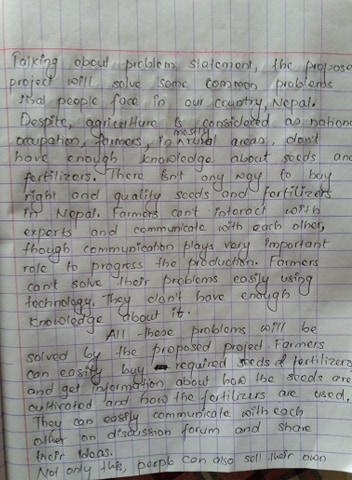 Talking about problem statement, the propose
project will solve some common problems
that people face in our country, Nepal.
Despite, agriculture is considered as nation
occupation, farmers, in mostly rural areas, don't
have enough knowledge about seeds and
fertilizers. There isn't any way to buy
right and quality seeds and fertilizers
in Nepal. Farmers can't interact with
experts and communicate with each other,
though communication plays very important
role to progress the production. Farmers
can't solve their problems easily using
technology. They don't have enough
knowledge about it.
All these problems will be
solved by the proposed project. Farmers
can easily buy required seeds & fertilizers
and get information about how the seeds are
cultivated and how the fertilizers are used.
They can easily communicate with each
other on discussion forum and share
their ideas.
Not only this, people can also sell their own